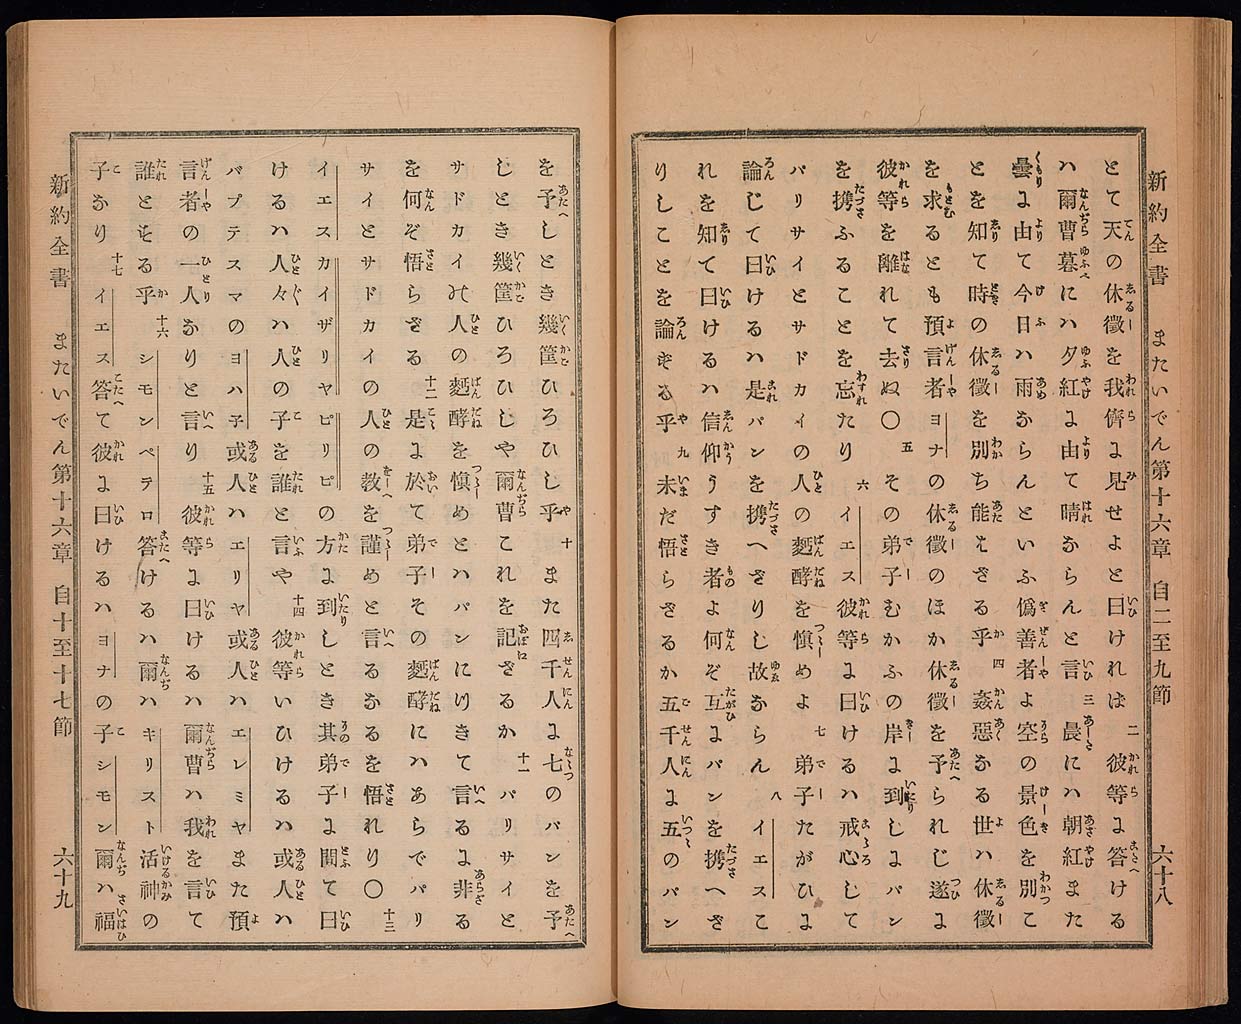 新約全書　またいでん第十六章　自二至九節　六十八
とて天の休徵を我儕に見せよと曰ければ 二 彼等に答ける
ハ爾曹暮にハ夕紅に由て晴ならんと言 三 晨にハ朝紅また
曇に由て今日ハ雨ならんといふ僞善者よ空の景色を別こ
とを知て時の休徵を別ち能はざる乎 四 姦惡なる世ハ休徵
を求るとも預言者ヨナの休徵のほか休徵を予られじ遂に
彼等を離れて去ぬ〇 五 その弟子むかふの岸に到しにパン
を携ふることを忘たり 六 イエス彼等に曰けるハ戒心して
パリサイとサドカイの人の麪酵を愼めよ 七 弟子たがひに
論じて曰けるハ是パンを携へざりし故ならん 八 イエスこ
れを知て曰けるハ信仰うすき者よ何ぞ互にパンを携へざ
りしことを論ずる乎 九 未だ悟らざるか五千人に五のパン
を予しとき幾筐ひろひし乎 十 また四千人に七のパンを予
しとき幾筐ひろひしや爾曹これを記ざるか 十一 パリサイと
サドカイの人の麪酵を愼めとハパンにつきて言るに非る
を何ぞ悟らざる 十二 是に於て弟子その麪酵にハあらでパリ
サイとサドカイの人の敎を謹めと言るなるを悟れり〇 十三
イエスカイザリヤピリピの方に到しとき其弟子に問て曰
けるハ人々ハ人の子を誰と言や 十四 彼等いひけるハ或人ハ
バプテスマのヨハ子或人ハエリヤ或人ハエレミヤまた預
言者の一人なりと言り 十五 彼等に曰けるハ爾曹ハ我を言て
誰とする乎 十六 シモンペテロ答けるハ爾ハキリスト活神の
子なり 十七 イエス答て彼に曰けるハヨナの子シモン爾ハ福
新約全書　またいでん第十六章　自十至十七節　六十九